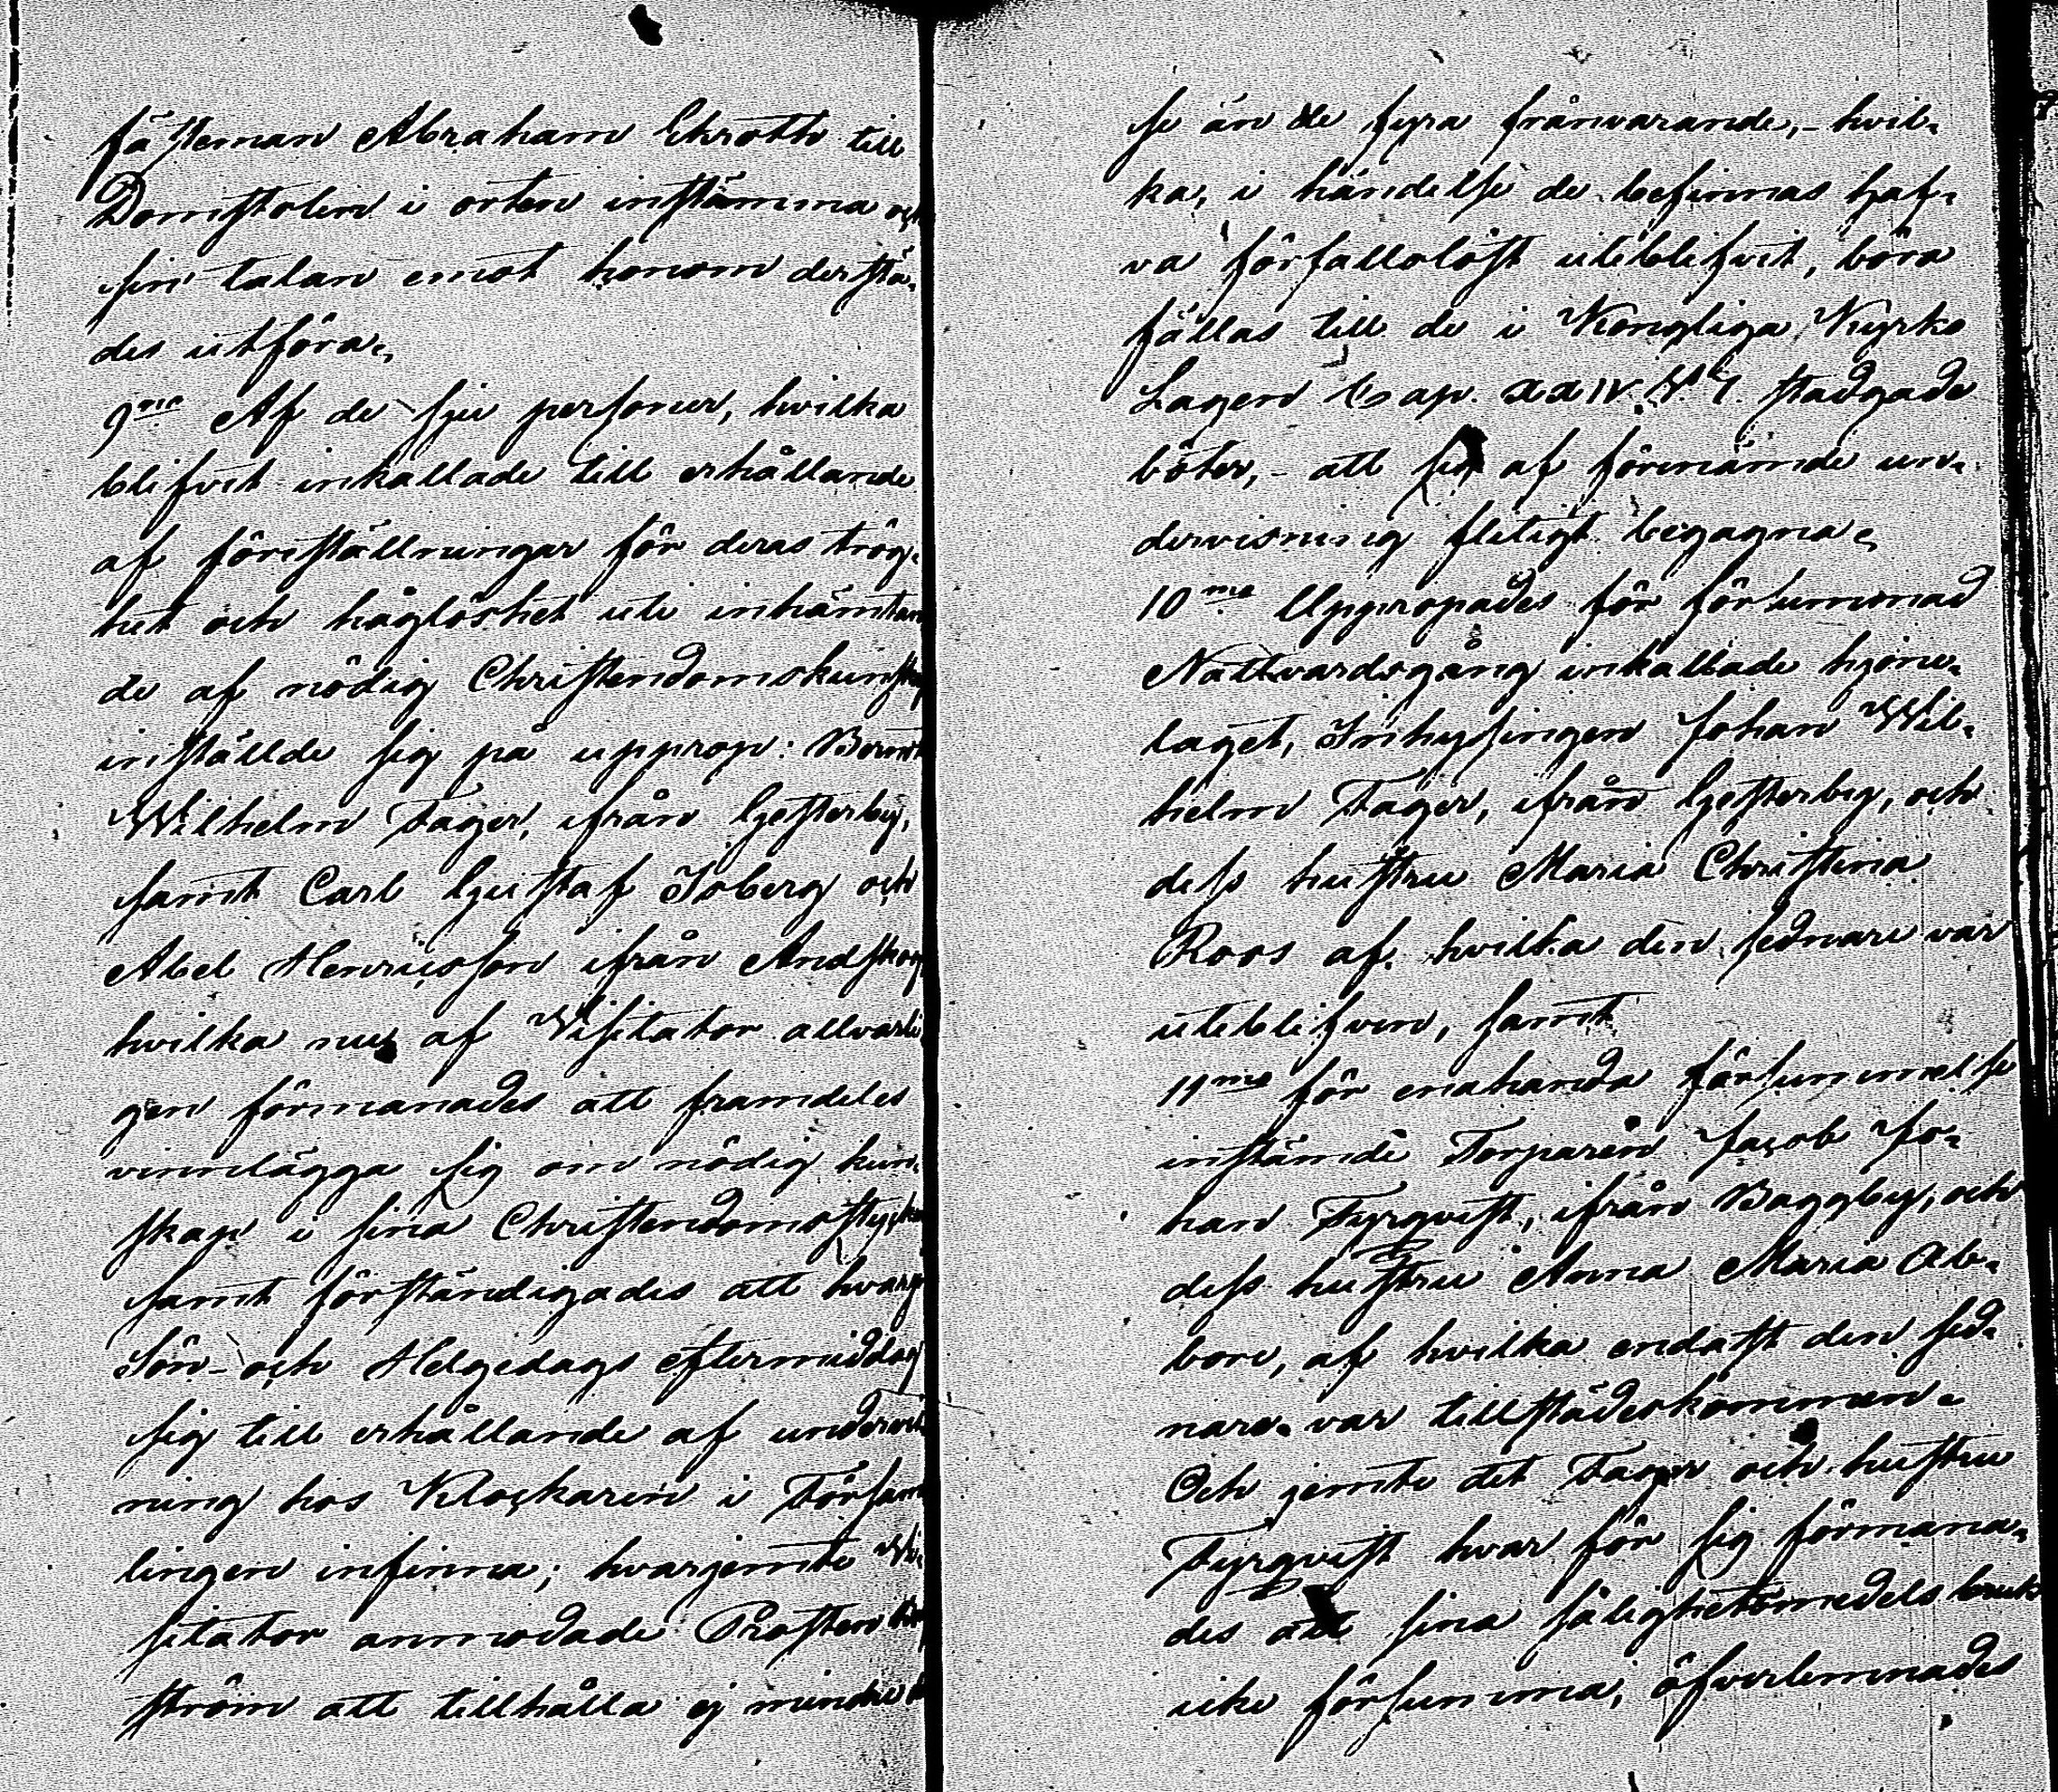 fästeman Abraham Ekroth till
Domstolen i orten instämma och
sin talan emot honom derstä-
des utföra.
9:me Af de sju personer, hvilka
blifvit inkallade till erhållande
af föreställningar för deras trög-
het och håglöshet uti inhämtan
de af nödig Christendomskunskap
inställde sig på upprop: Bernt
Wilhelm Fager, ifrån Gesterby,
samt Carl Gustaf Isberg och
Abel Henricsson ifrån Andskog
hvilka nu af Visitator allvarli
gen förmanades att framdeles
vinnlägga sig om nödig kun-
skap i sina Christendomsstycken
samt förständigades att hvarje
Sön- och Helgedags eftermiddag
sig till erhållande af undervis
ning hos Klockaren i Försam
lingen infinna; hvarjemte Vi-
sitator anmodade Prosten
ström att tillhålla ej mindre
se än de fyra frånvarande,- hvil-
ka, i händelse de befinnas haf-
va förfallolöst uteblifvit, böra
fällas till de i Kongliga Kyrko
Lagen Cap. XXIV. §. 7. stadgade
böter,- att sig af förenämde un-
dervisning flitigt begagna.
10:me Uppropades för försummad
Nattvardsgång inkallade hjone-
laget, Inhysingen Johan Wil-
helm Fager, ifrån Gesterby, och
dess hustru Maria Christina
Roos af hvilka den sednare var
utebliven, samt
11:me för enahanda försummelse
instämde Torparen Jacob Jo-
han Fyrqvist, ifrån Baggby, och
dess hustru Anna Maria Ab-
bore, af hvilka endast den sed-
nare var tillstädeskommen.
Och jemte det Fager och hustru
Fyrqvist hvar för sig förmana-
des att sina sälighetsmedels bruk
icke försumma, öfverlemnades